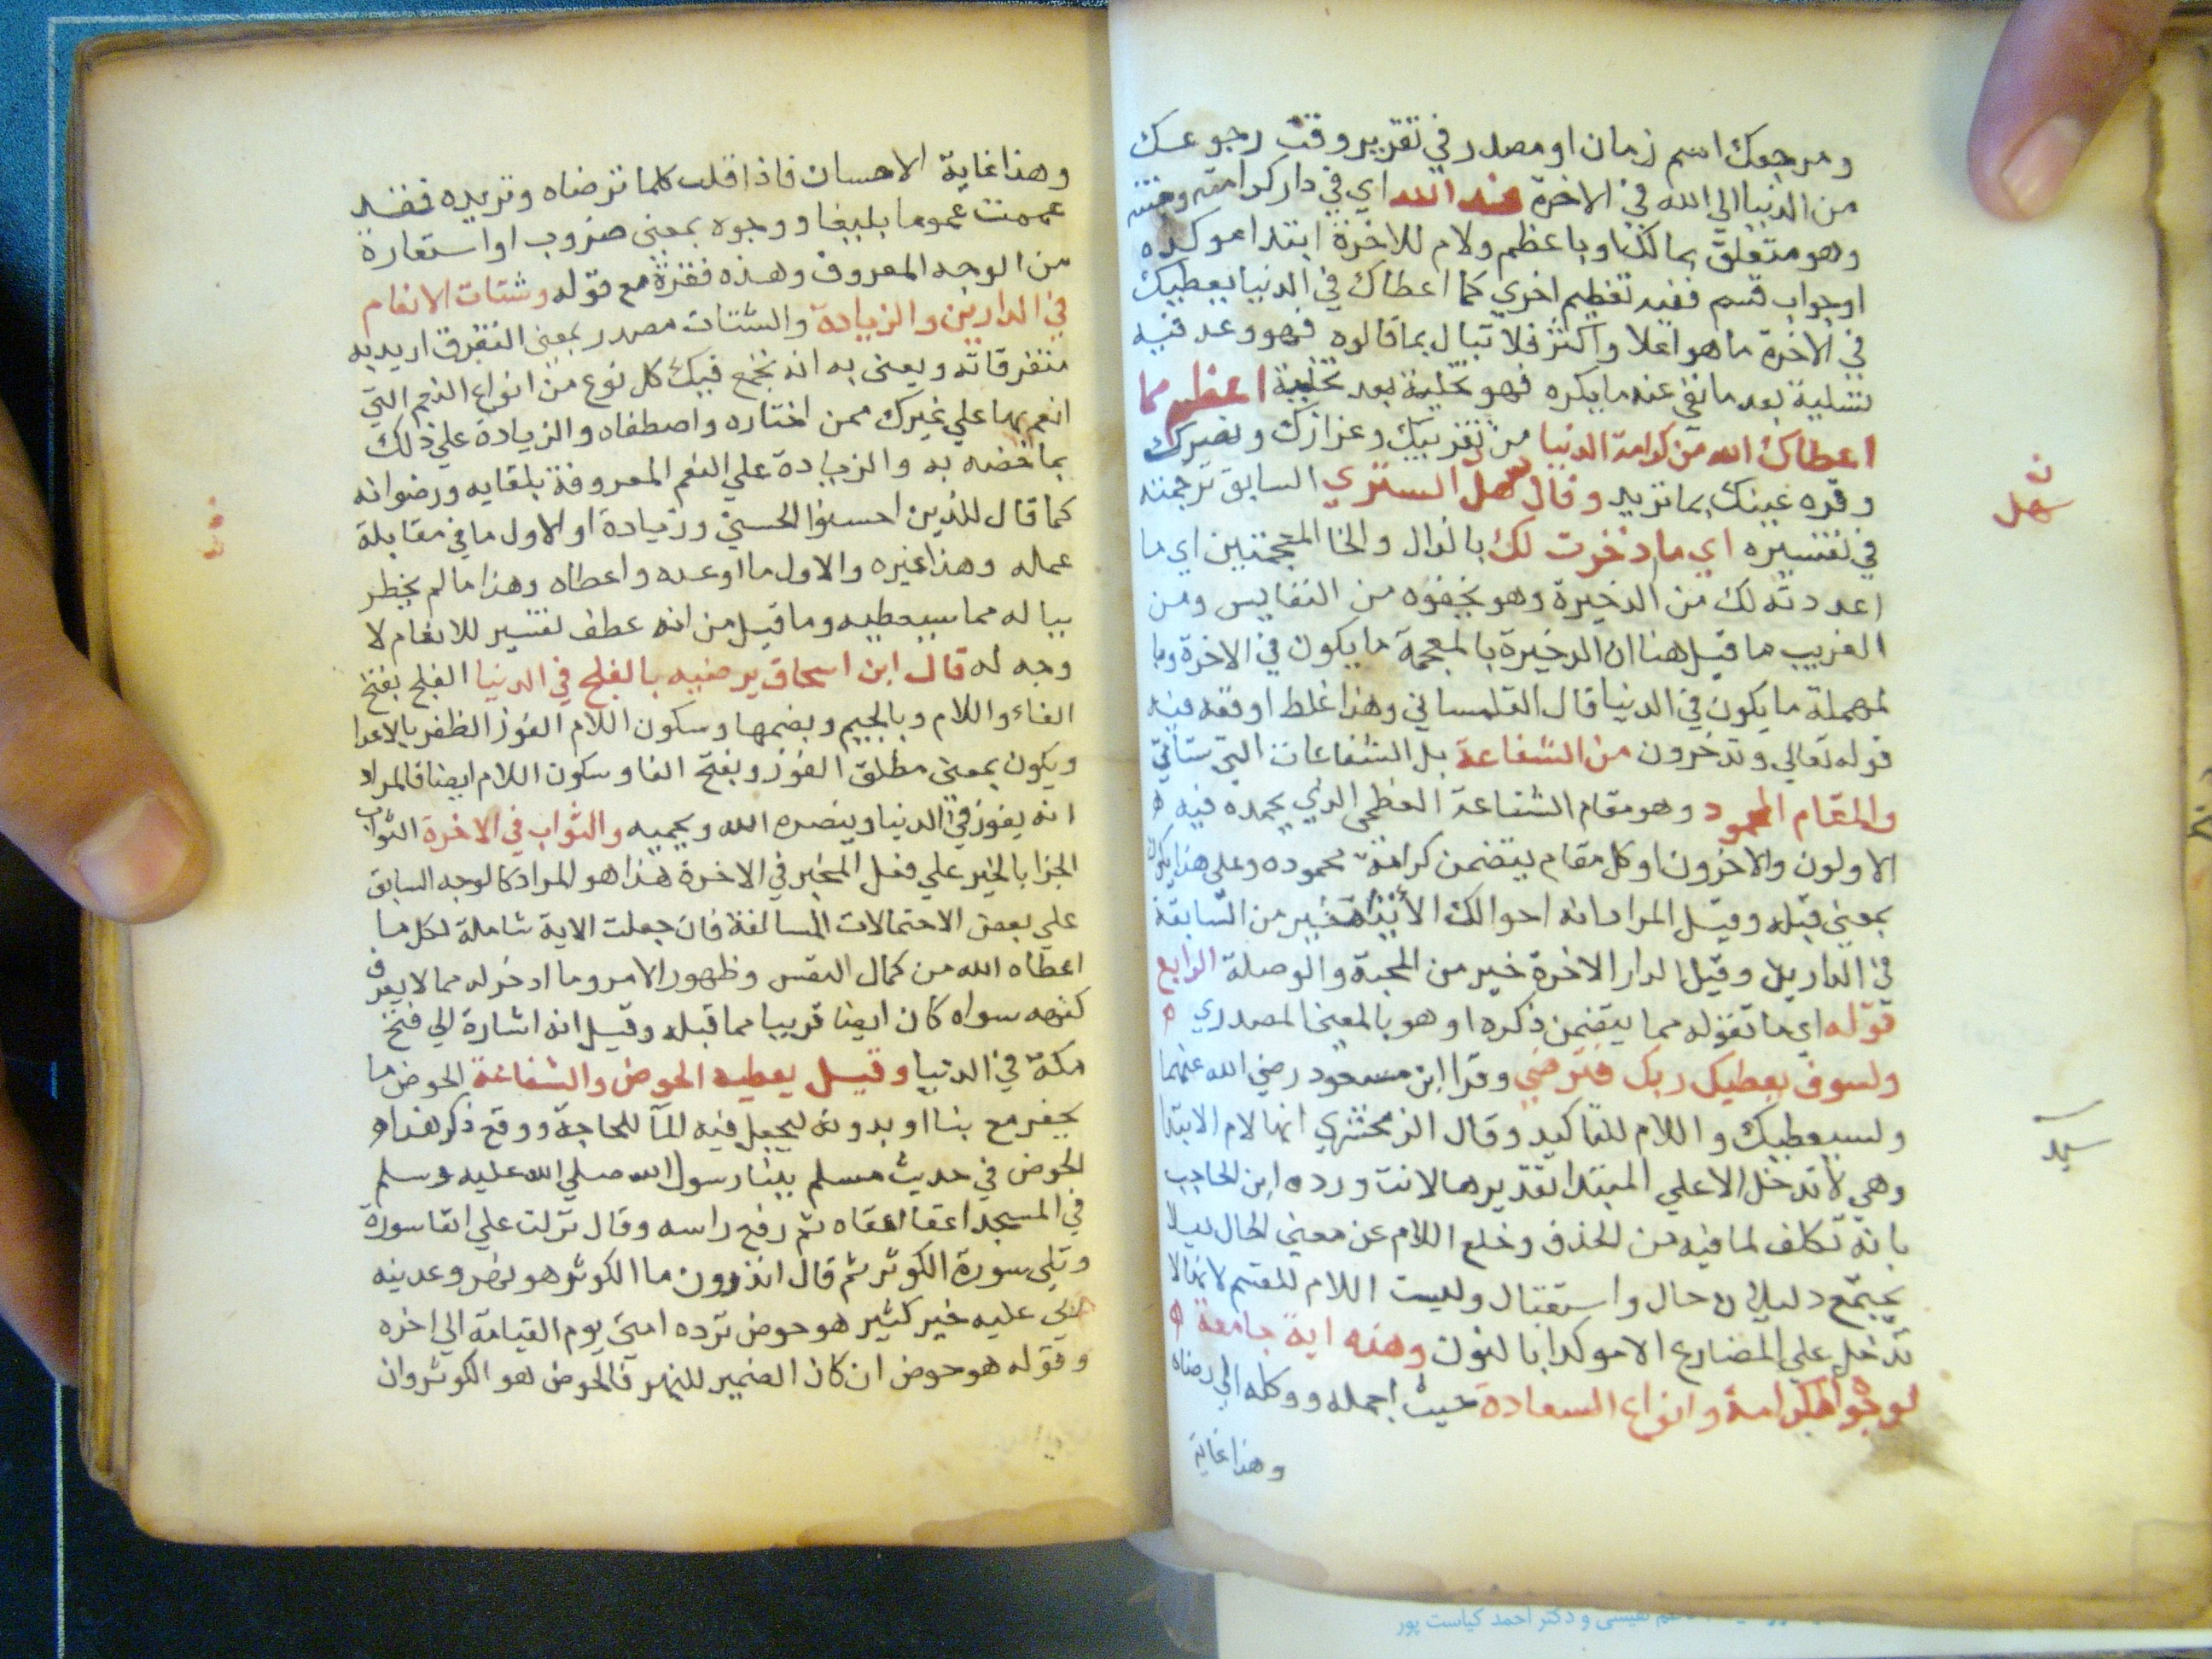 ومرجعك اسم زمان او مصدر في تقرير وقت رجوعك
من الدنيا الي الله في الاخرة عند الله اي في دار كرامته وجنته
وهو متعلق بمالك او باعظم ولام للاخرة ابتدا موكده
او جواب قسم ففيه تعظيم اخري كما اعطاك في الدنيا يعطيك
في الاخرة ما هو اعلا واكثر فلا تبال بما قالوه فهو وعد فيه
تسلية بعد ما نفي عنه ما يكره فهو تحلية بعد تخلية اعظم مما
اعطاك الله من كرامة الدنيا من تقريبك وعزازك ونصرك
وقره عينك بما تريد وقال سهل التستري السابق ترجمته
سهل
في تفسيره اي ما ذخرت لك بالذال والخا المعجمتين اي ما
اعددته لك من الذخيرة وهو يخفوه من النفايس ومن
الغريب ما قيل هنا ان الذخيرة بالمعجمة ما يكون في الاخرة وبا
لمهملة ما يكون في الدنيا قال التلمساني وهذا غلط اوقعه فيه
قوله تعالي وتدخرون من الشفاعة بل الشفاعات التي ستاتي
والمقام المحمود وهو مقام الشفاعة العظمي الذي يحمده فيه
الاولون والاخرون او كل مقام يتضمن كرامة محموده وعلي هذا يكون
بمعني قبله وقيل المراد انه احوالك الأتية خير من السابقة
في الدارين وقيل الدار الاخرة خير من المحبة والوصلة الرابع
قوله اي ما تقوله مما يتضمن ذكره او هو بالمعني المصدري
ولسوف يعطيك ربك فترضي وقرا ابن مسعود رضي الله عنهما
ولسيعطيك واللام للتاكيد وقال الزمخشري انها لام الابتدا
وهي لا تدخل الا علي المبتدا تقديرها لانت ورده ابن الحاجب
بانه تكلف لما فيه من الحذف وخلع اللام عن معني الحال ليلا
يجتمع دليلان حال واستقبال وليست اللام للقسم لانها لا
تدخل علي المضارع الا موكدا بالنون وهذه اية جامعة
لوجوه الكرامة وانواع السعادة حيث اجمله ووكله الي رضاه
وهذا غاية
وهذا غاية الاحسان فاذا قلت كلما ترضاه وتريده فقد
عممت عموما بليغا ووجوه بمعني ضروب او استعارة
من الوجه المعروف وهذه فقرة مع قوله وشتات الانعام
في الدارين والزيادة والشتات مصدر بمعني التفرق اريد به
متفرقاته ويعني به انه يجمع فيك كل نوع من انواع النعم التي
انعم بها علي غيرك ممن اختاره واصطفاه والزيادة علي ذلك
بما خصه به والزيادة علي النعم المعروفة بلقايه ورضوانه
كما قال للذين احسنوا الحسني وزيادة او الاول ما في مقابلة
عمله وهذا غيره والاول ما اوعده واعطاه وهذا ما لم يخطر
بباله مما سيعطيه وما قيل من انه عطف تفسير للانعام لا
وجه له قال ابن اسحاق يرضيه بالفلج في الدنيا الفلج بفتح
الفاء واللام وبالجيم وبضمها وسكون اللام الفوز الظفر بالاعدا
ويكون بمعني مطلق الفوز وبفتح الفا وسكون اللام ايضا فالمراد
انه يفوز في الدنيا وينصره الله ويحميه والثواب في الاخرة الثواب
الجزا بالخير علي فعل الخير في الاخرة هذا هو المراد كالوجه السابق
علي بعض الاحتمالات السالفة فان جعلت الاية شاملة لكل ما
اعطاه الله من كمال النفس وظهور الامر وما ادخر له مما لا يعرف
كنهه سواه كان ايضا قريبا مما قبله وقيل انه اشارة الي فتح
مكة في الدنيا وقيل يعطيه الحوض والشفاعة الحوض ما
يحفر مع بنا او بدونه ليجعل فيه المآ للحاجة ووقع ذكر هذا
الحوض في حديث مسلم بينا رسول الله صلي الله عليه وسلم
في المسجد اغفا اغفاه ثم رفع راسه وقال نزلت علي انفا سورة
وتلي سورة الكوثر ثم قال اتدرون ما الكوثر هو نهر وعدنيه
ربي عليه خير كثير هو حوض ترده امتي يوم القيامة الي اخره
وقوله هو حوض ان كان الضمير للنهر فالحوض هو الكوثر وان